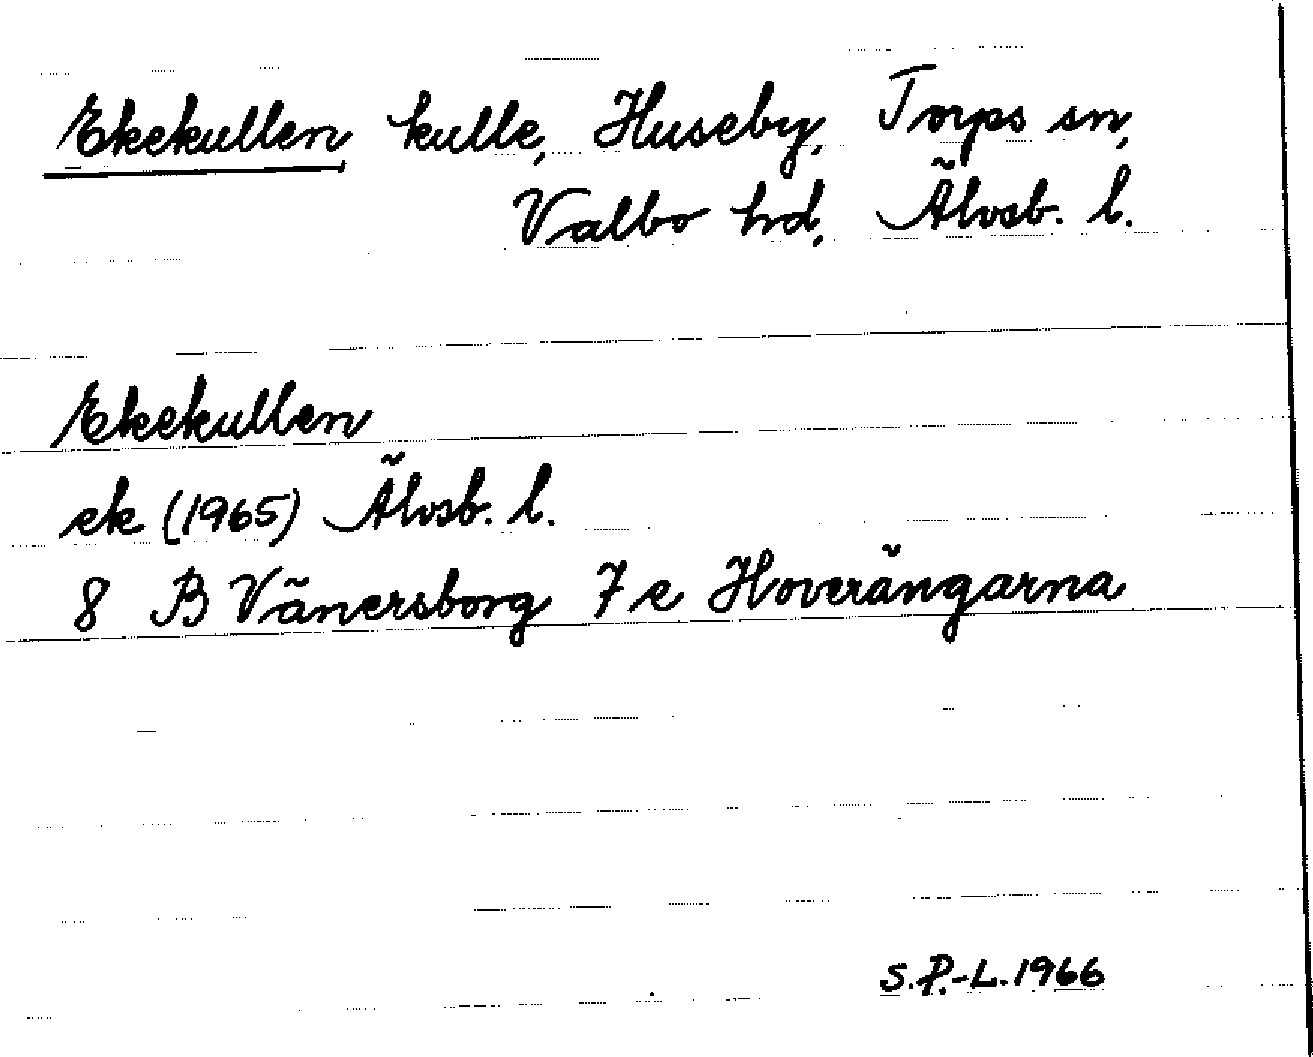 Ekekullen kulle, Huseby, Torps sn,
Valbo hd, Älvsb. l.
Ekekullen
ek (1965) Älvsb. l.
8 B Vänersborg 7 e Hoverängarna
S.P.-L. 1966